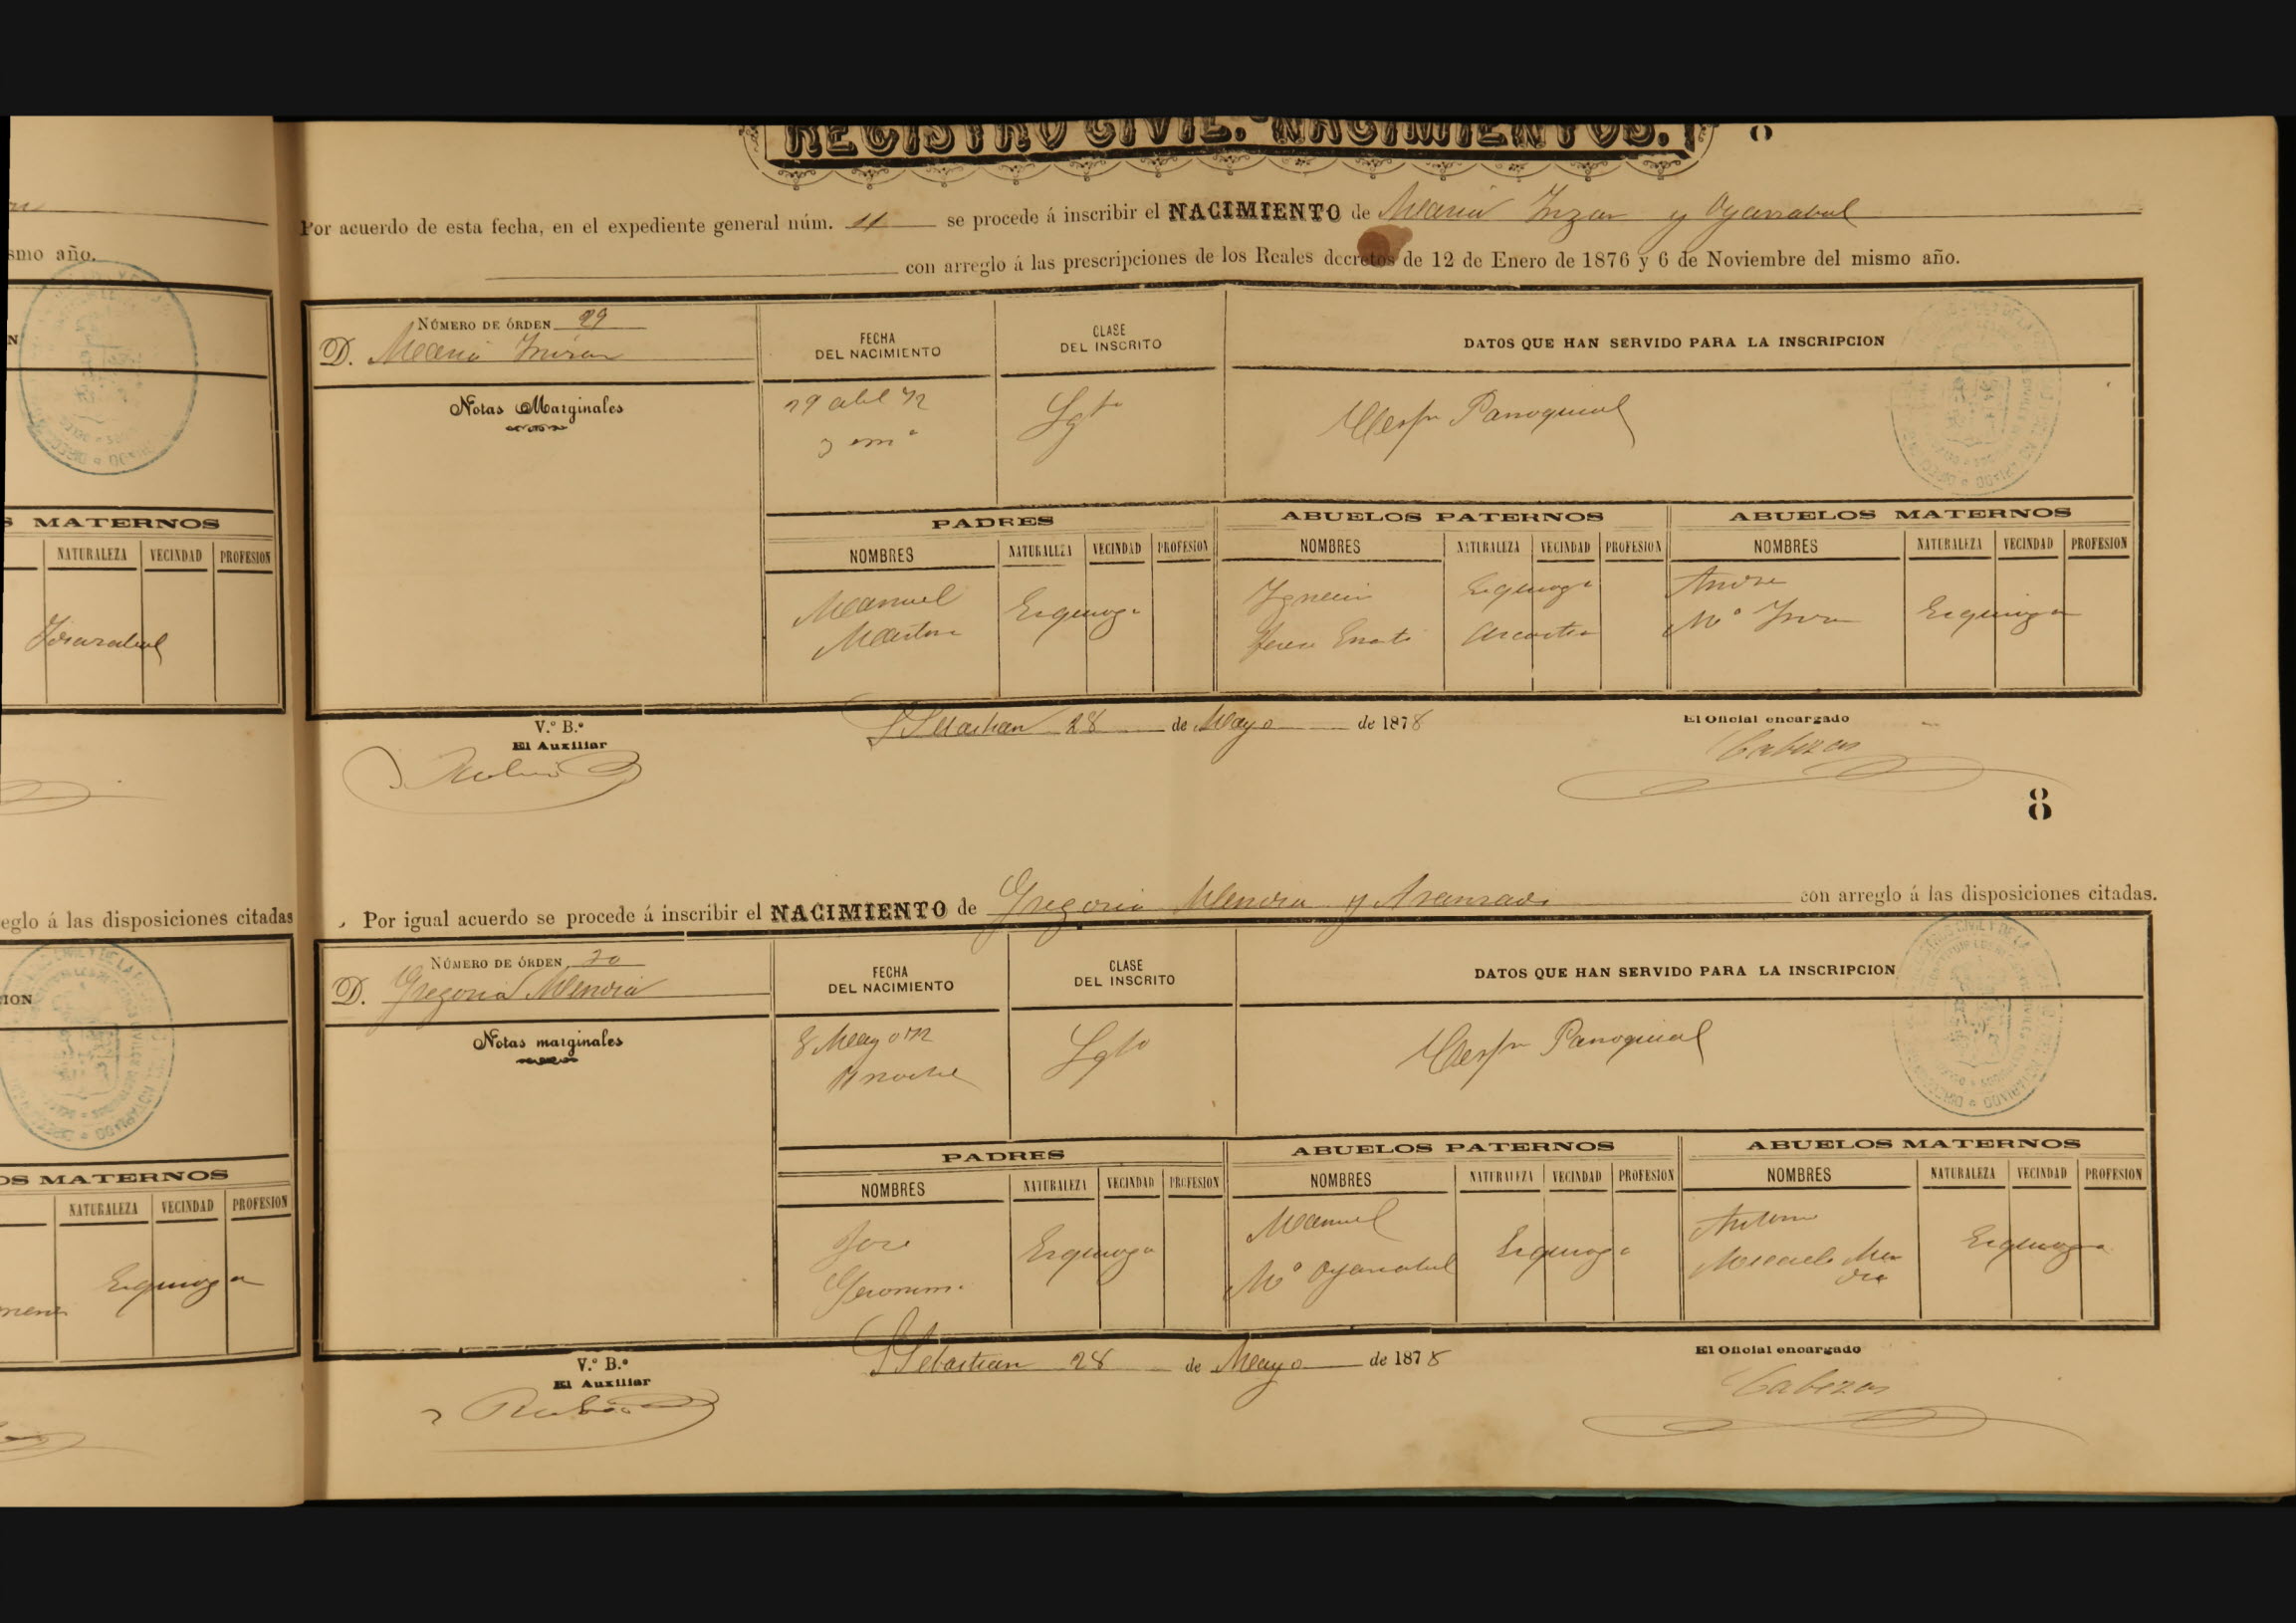 REGISTRO CIVIL.-NACIMIENTOS.
8
Por acuerdo de esta fecha, en el expediente general núm. 11 se procede á inscribir el NACIMIENTO de Maria Inzar y Oyarzabal
con arreglo á las prescripciones de los Reales decretos de 12 de Enero de 1876 y 6 de Noviembre del mismo año.
smo año.
NÚMERO DE ÓRDEN 29
D. Maria
FECHA DEL NACIMIENTO
CLASE DEL INSCRITO
DATOS QUE HAN SERVIDO PARA LA INSCRIPCION
Notas Marginales
29 abril 72
3 mª
Lgto
Parroquial
S MATERNOS
NATURALEZA VECINDAD PROFESION
PADRES
ABUELOS PATERNOS
ABUELOS MATERNOS
NOMBRES NATURALEZA VECINDAD PROFESION
NOMBRES NATURALEZA VECINDAD PROFESION
NOMBRES NATURALEZA VECINDAD PROFESION
Manuel
Ezquioga
Ignacio Ezquioga
Mª
Ezquioga
V.º B.º
El Auxiliar
Rubio
S Sebastian 28 de Mayo de 1878
El Oficial encargado
Cabezas
8
eglo á las disposiciones citadas
Por igual acuerdo se procede á inscribir el NACIMIENTO de Gregoria Mendia y con arreglo á las disposiciones citadas.
NÚMERO DE ÓRDEN 30
D. Gregoria Mendia
FECHA DEL NACIMIENTO
CLASE DEL INSCRITO
DATOS QUE HAN SERVIDO PARA LA INSCRIPCION
ION
Notas marginales
8 Mayo 72
11 noche
Lgto
Parroquial
OS MATERNOS
NATURALEZA VECINDAD PROFESION
PADRES
ABUELOS PATERNOS
ABUELOS MATERNOS
NOMBRES NATURALEZA VECINDAD PROFESION
NOMBRES NATURALEZA VECINDAD PROFESION
NOMBRES NATURALEZA VECINDAD PROFESION
Ezquioga
Jose
Geronima
Ezquioga
Manuel
Mª Oyarzabal
Ezquioga
Antonio
Micaela Mendia
Ezquioga
V.º B.º
El Auxiliar
Rubio
S Sebastian 28 de Mayo de 1878
El Oficial encargado
Cabezas